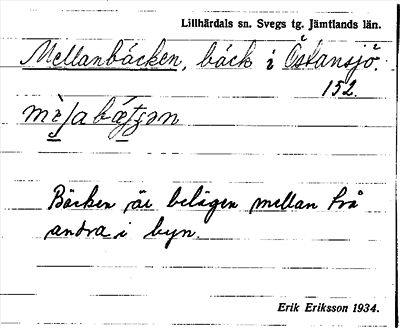 Lillhärdals sn. Svegs tg. Jämtlands län.
Mellanbäcken, bäck i Östansjö.
152.
Bäcken är belägen mellan två
andra i byn.
Erik Eriksson 1934.